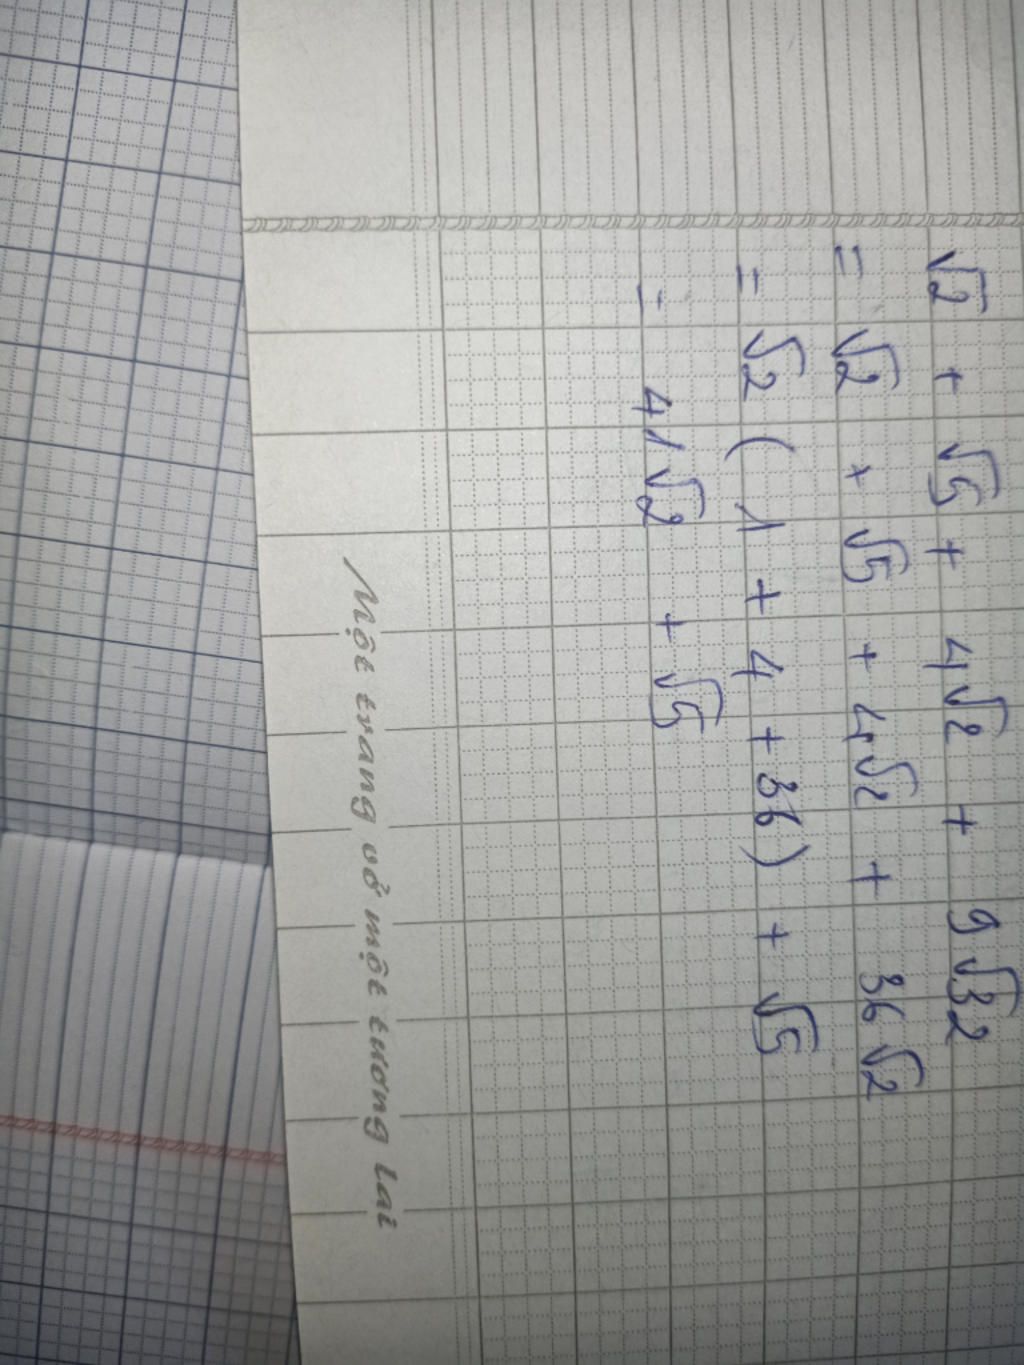 √2 + √5 + 4√2 + 9√32
= √2 + √5 + 4√2 + 36√2
= √2 (1 + 4 + 36) + √5
= 41√2 + √5
Một trang vở một tương lai